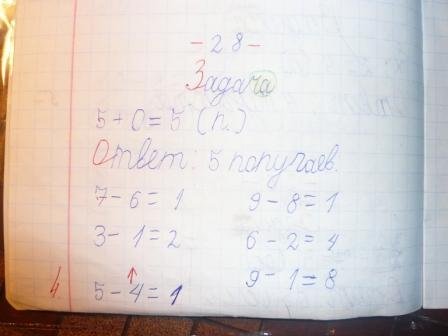 - 28 -
Задача
5 + 0 = 5 (п.)
Ответ: 5 попугаев.
7 - 6 = 1 9 - 8 = 1
3 - 1 = 2 6 - 2 = 4
5 - 4 = 1 9 - 1 = 8